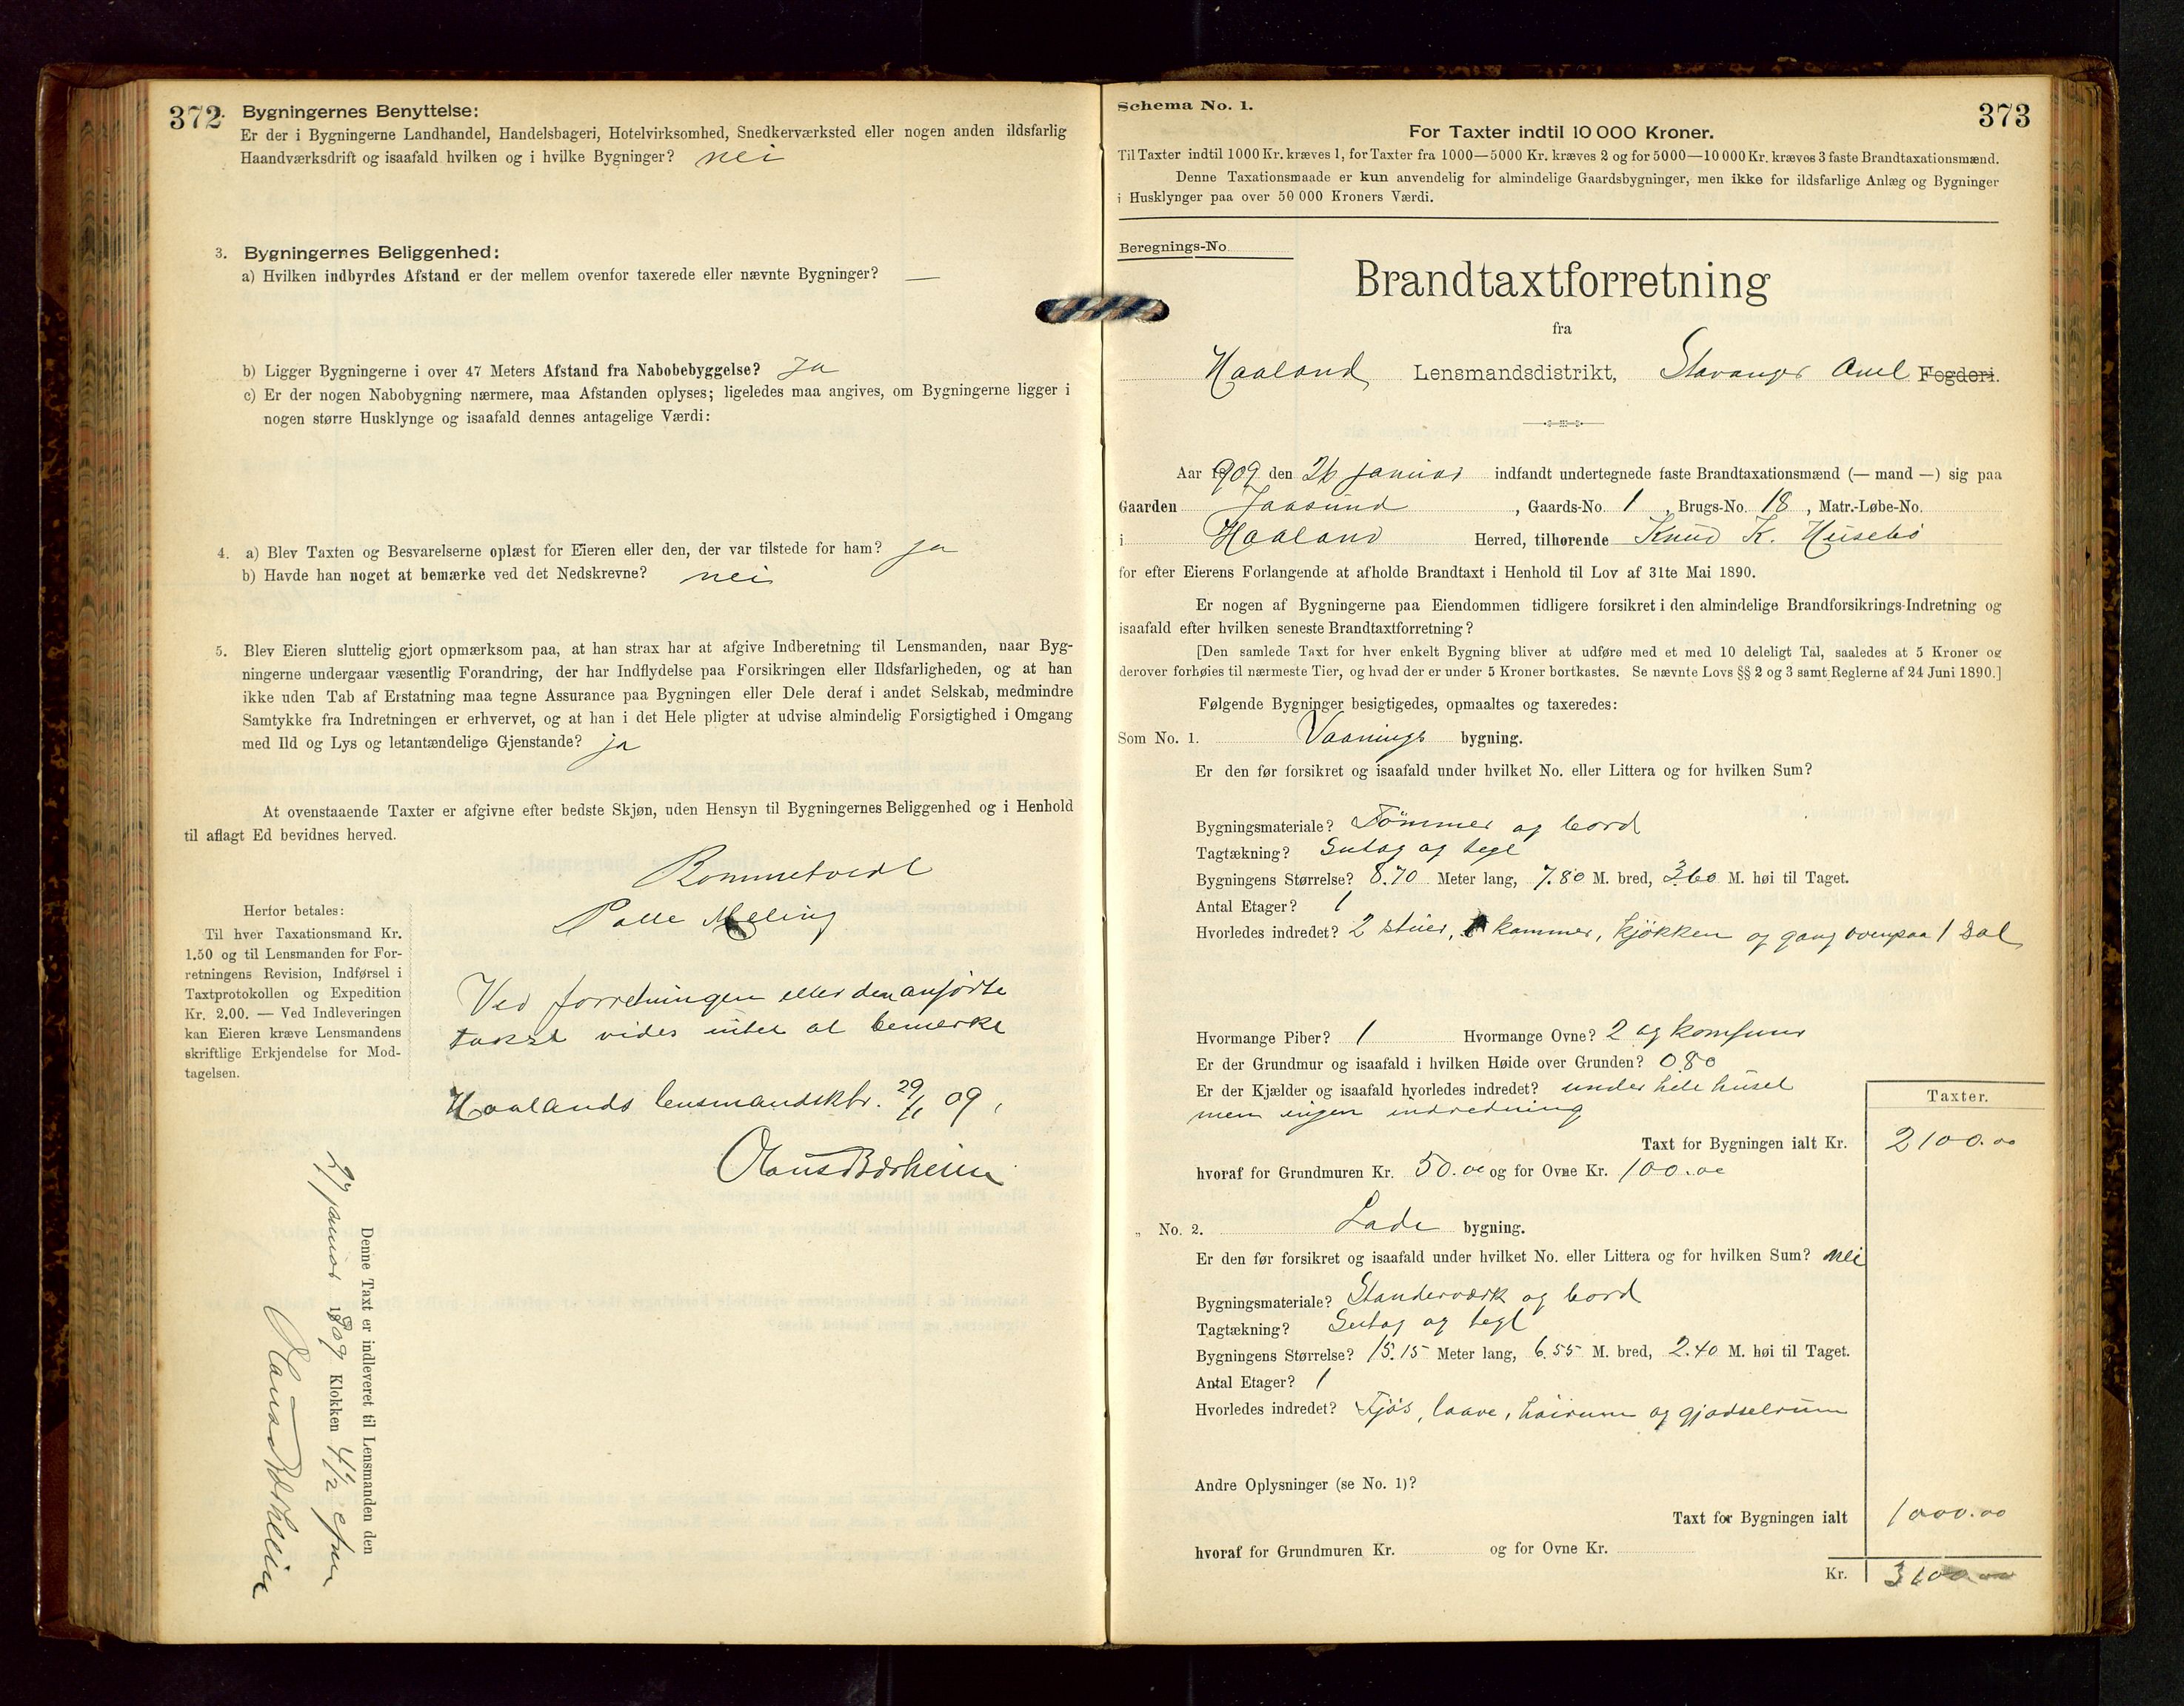 372
Bygningernes Benyttelse:
Er der i Bygningerne Landhandel, Handelsbageri, Hotelvirksomhed, Snedkerværksted eller nogen anden ildsfarlig
Haandværksdrift og isaafald hvilken og i hvilke Bygninger? nei
3. Bygningernes Beliggenhed:
a) Hvilken indbyrdes Afstand er der mellem ovenfor taxerede eller nævnte Bygninger? —
b) Ligger Bygningerne i over 47 Meters Afstand fra Nabobebyggelse? Ja
c) Er der nogen Nabobygning nærmere, maa Afstanden oplyses; ligeledes maa angives, om Bygningerne ligger i
nogen større Husklynge og isaafald dennes antagelige Værdi:
4. a) Blev Taxten og Besvarelserne oplæst for Eieren eller den, der var tilstede for ham? ja
b) Havde han noget at bemærke ved det Nedskrevne? nei
5. Blev Eieren sluttelig gjort opmærksom paa, at han strax har at afgive Indberetning til Lensmanden, naar Byg-
ningerne undergaar væsentlig Forandring, der har Indflydelse paa Forsikringen eller Ildsfarligheden, og at han
ikke uden Tab af Erstatning maa tegne Assurance paa Bygningen eller Dele deraf i andet Selskab, medmindre
Samtykke fra Indretningen er erhvervet, og at han i det Hele pligter at udvise almindelig Forsigtighed i Omgang
med Ild og Lys og letantændelige Gjenstande? ja
At ovenstaaende Taxter er afgivne efter bedste Skjøn, uden Hensyn til Bygningernes Beliggenhed og i Henhold
til aflagt Ed bevidnes herved.
Rommetvedt
Palle Meling
Herfor betales:
Til hver Taxationsmand Kr.
1.50 og til Lensmanden for For-
retningens Revision, Indførsel i
Taxtprotokollen og Expedition
Kr. 2.00. — Ved Indleveringen
kan Eieren kræve Lensmandens
skriftlige Erkjendelse for Mod-
tagelsen.
Ved forretningen eller den anførte
takst vides intet at bemerke
Haalands lensmandsktr. 29/1 09,
Olaus Børheim
Denne Taxt er indleveret til Lensmanden den
27 januar 1909 Klokken 4 1/2 efm
Olaus Børheim
Schema No. 1.
373
For Taxter indtil 10 000 Kroner.
Til Taxter indtil 1000 Kr. kræves 1, for Taxter fra 1000—5000 Kr. kræves 2 og for 5000—10 000 Kr. kræves 3 faste Brandtaxationsmænd.
Denne Taxationsmaade er kun anvendelig for almindelige Gaardsbygninger, men ikke for ildsfarlige Anlæg og Bygninger
i Husklynger paa over 50 000 Kroners Værdi.
Beregnings-No.
Brandtaxtforretning
fra
Haaland Lensmandsdistrikt, Stavanger Amt Fogderi.
Aar 1909 den 26 januar indfandt undertegnede faste Brandtaxationsmænd (— mand —) sig paa
Gaarden Jaasund, Gaards-No. 1, Brugs-No. 18, Matr.-Løbe-No.
i Haaland Herred, tilhørende Knud K. Husebø
for efter Eierens Forlangende at afholde Brandtaxt i Henhold til Lov af 31te Mai 1890.
Er nogen af Bygningerne paa Eiendommen tidligere forsikret i den almindelige Brandforsikrings-Indretning og
isaafald efter hvilken seneste Brandtaxtforretning?
[Den samlede Taxt for hver enkelt Bygning bliver at udføre med et med 10 deleligt Tal, saaledes at 5 Kroner og
derover forhøies til nærmeste Tier, og hvad der er under 5 Kroner bortkastes. Se nævnte Lovs §§ 2 og 3 samt Reglerne af 24 Juni 1890.]
Følgende Bygninger besigtigedes, opmaaltes og taxeredes:
Som No. 1. Vaanings bygning.
Er den før forsikret og isaafald under hvilket No. eller Littera og for hvilken Sum?
Bygningsmateriale? Tømmer og bord
Tagtækning? Sutag og tegl
Bygningens Størrelse? 8.70 Meter lang, 7.80 M. bred, 3.60 M. høi til Taget.
Antal Etager? 1
Hvorledes indredet? 2 stuer, kammer, kjøkken og gang ovenpaa 1 Sal
Hvormange Piber? 1 Hvormange Ovne? 2 og komfuur
Er der Grundmur og isaafald i hvilken Høide over Grunden? 0.80
Er der Kjælder og isaafald hvorledes indredet? under hele huset
men ingen indredning
Taxter.
Taxt for Bygningen ialt Kr. 2100.00
hvoraf for Grundmuren Kr. 50.00 og for Ovne Kr. 100.00
„ No. 2. Lade bygning.
Er den før forsikret og isaafald under hvilket No. eller Littera og for hvilken Sum? nei
Bygningsmateriale? Standerværk og bord
Tagtækning? Sutag og tegl
Bygningens Størrelse? 15.15 Meter lang, 6.55 M. bred, 2.40 M. høi til Taget.
Antal Etager? 1
Hvorledes indredet? Fjøs, laave, høirum og gjødselrum
Andre Oplysninger (se No. 1)?
Taxt for Bygningen ialt 1000.00
hvoraf for Grundmuren Kr. og for Ovne Kr.
Kr. 3100.00